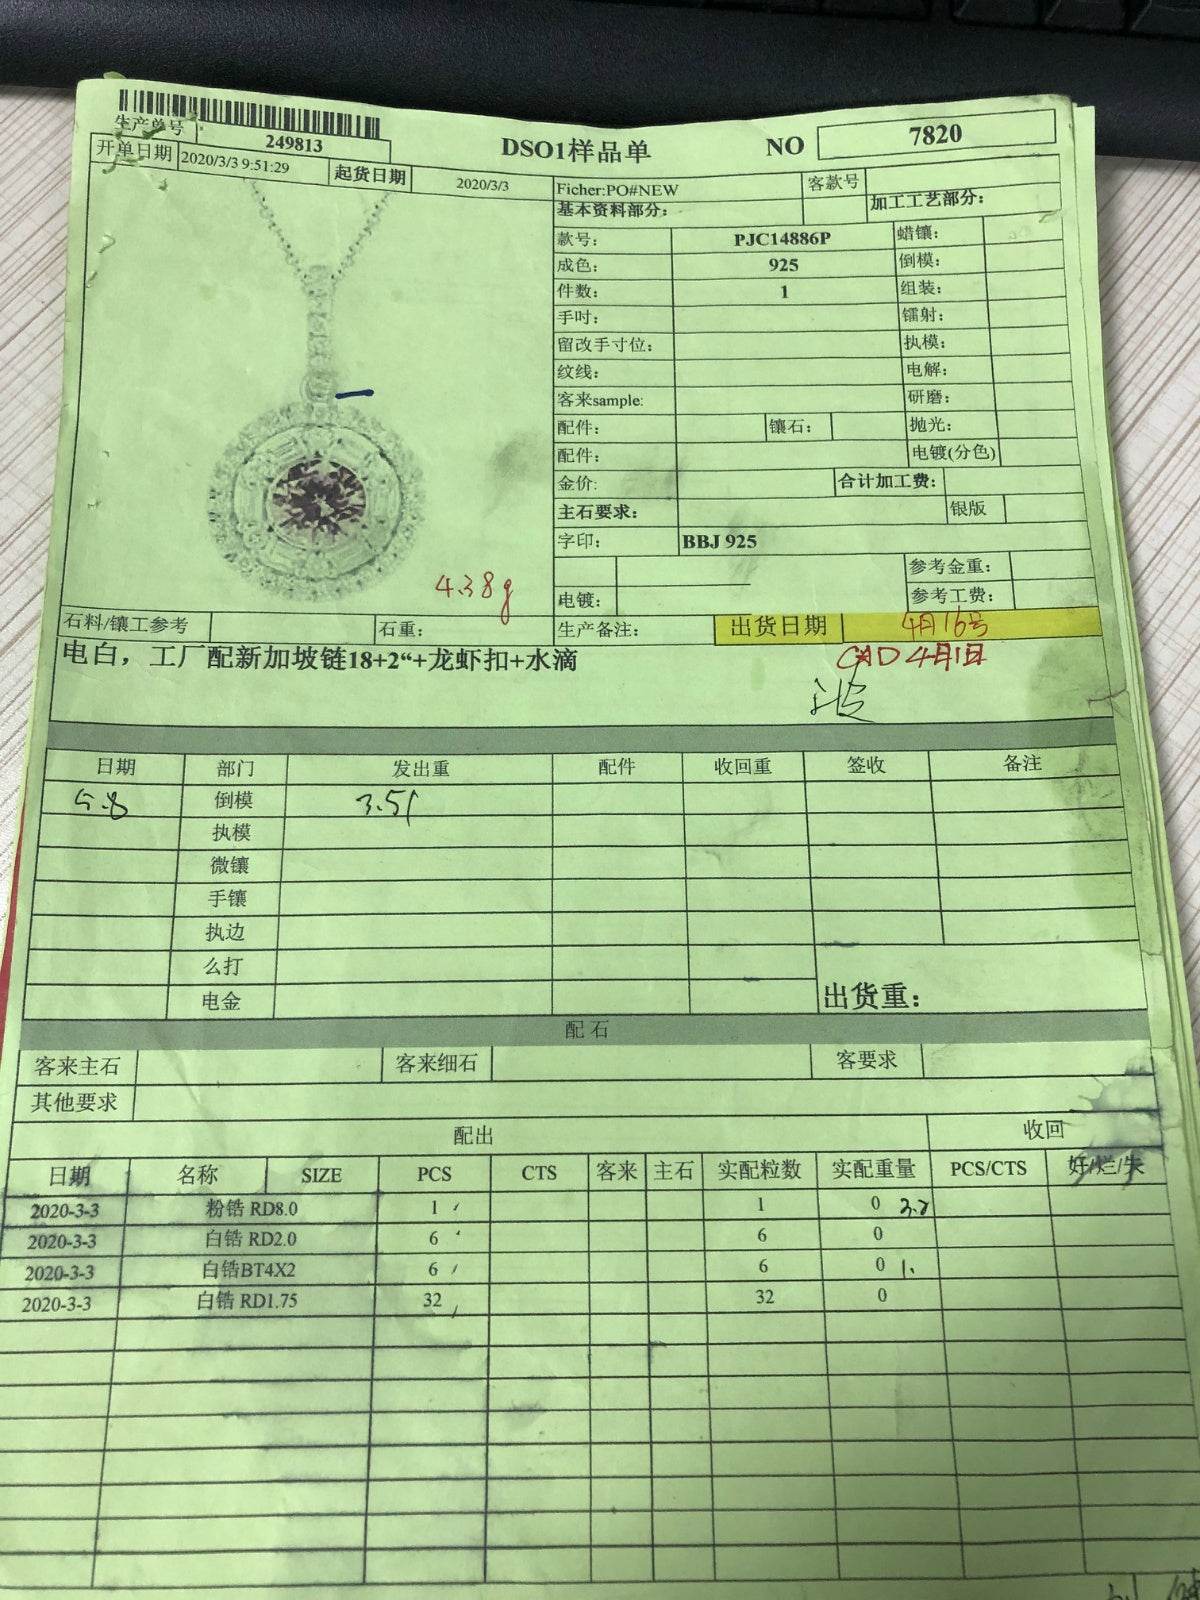 生产单号 249813
DSO1样品单 NO 7820
开单日期 2020/3/3 9:51:29 起货日期 2020/3/3
Ficher:PO#NEW 客款号
基本资料部分： 加工工艺部分：
款号： PJC14886P 蜡镶：
成色： 925 倒模：
件数： 1 组装：
手吋： 镭射：
留改手寸位： 执模：
纹线： 电解：
客来sample: 研磨：
配件： 镶石： 抛光：
配件： 电镀(分色)
金价: 合计加工费：
主石要求： 银版
字印： BBJ 925
参考金重：
电镀： 参考工费：
4.38g
石料/镶工参考 石重： 生产备注： 出货日期 4月16号
电白，工厂配新加坡链18+2“+龙虾扣+水滴
CAD 4月1日
日期 部门 发出重 配件 收回重 签收 备注
倒模 3.51
执模
微镶
手镶
执边
么打
电金
出货重：
配 石
客来主石 客来细石 客要求
其他要求
配出 收回
日期 名称 SIZE PCS CTS 客来 主石 实配粒数 实配重量 PCS/CTS 奸/烂/失
2020-3-3 粉锆 RD8.0 1 1 0
2020-3-3 白锆 RD2.0 6 6 0
2020-3-3 白锆BT4X2 6 6 0
2020-3-3 白锆 RD1.75 32 32 0